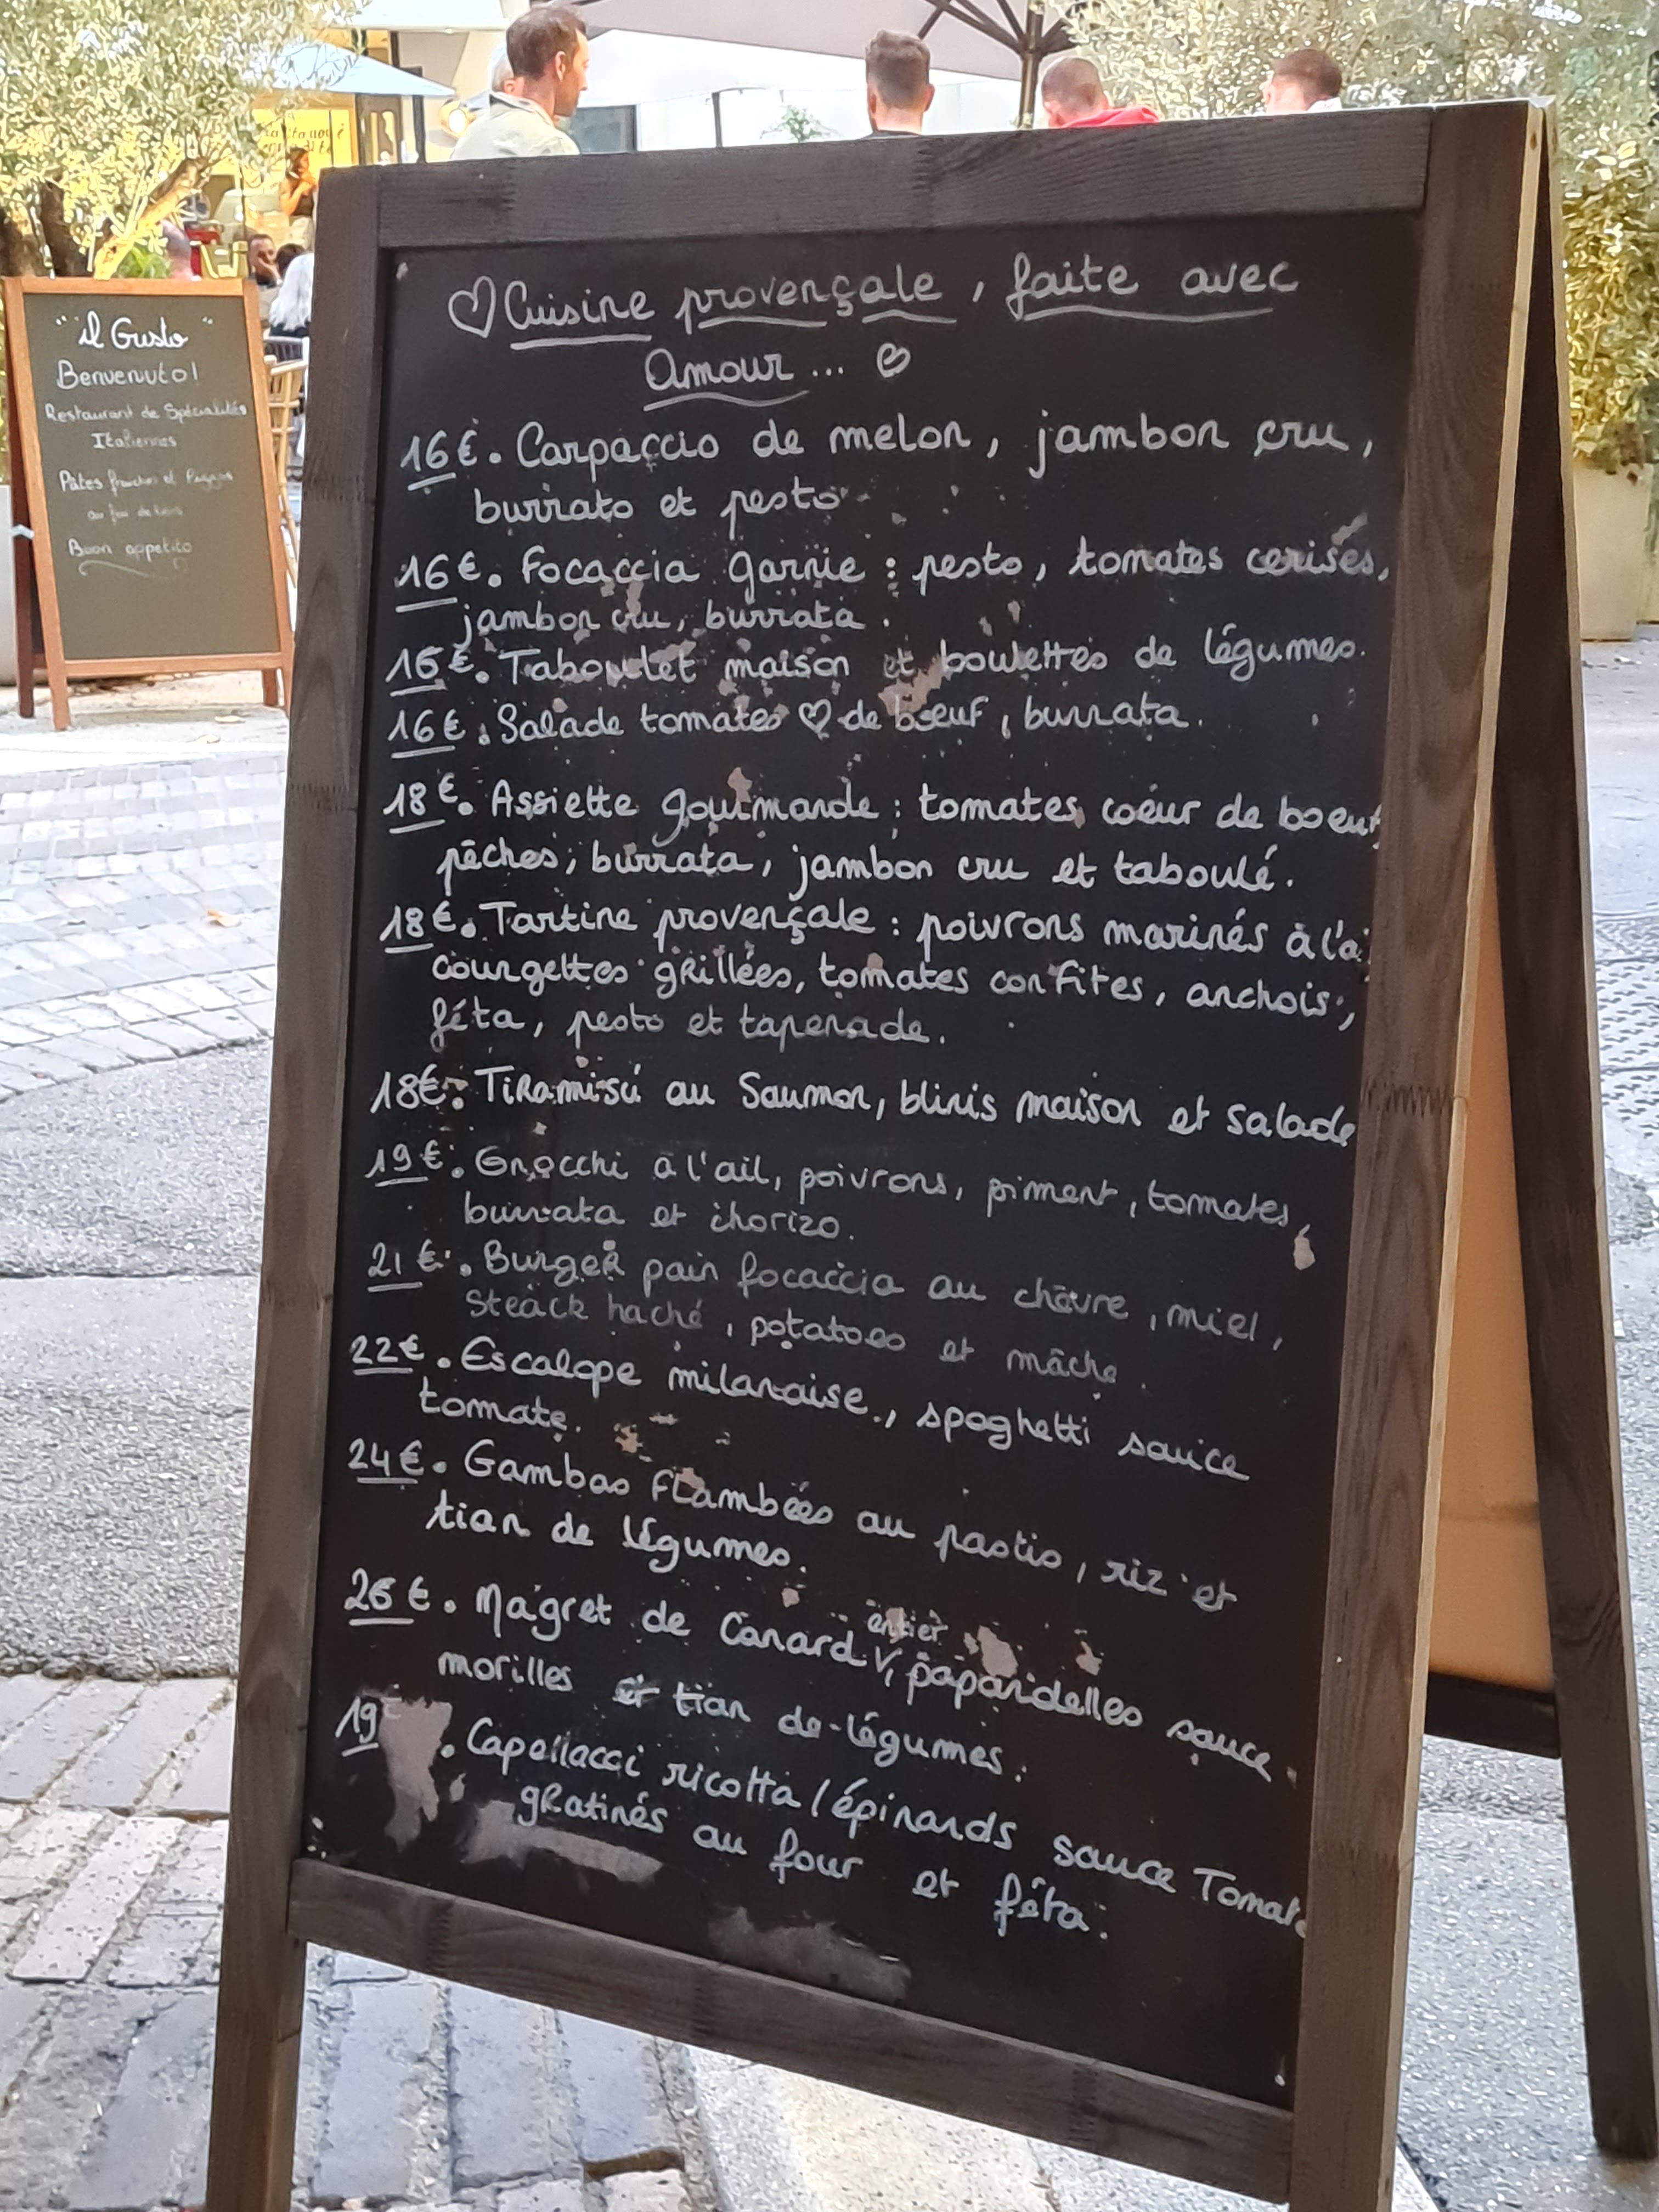 Cuisine provençale, faite avec
Amour...
16€. Carpaccio de melon, jambon cru,
burrato et pesto
16€. Focaccia garnie : pesto, tomates cerises,
jambon cru, burrata.
16€. Taboulet maison et boulettes de légumes.
16€. Salade tomates ♡ de bœuf, burrata.
18€. Assiette gourmande : tomates coeur de boeuf
pêches, burrata, jambon cru et taboulé.
18€. Tartine provençale : poivrons marinés à l'ai
courgettes grillées, tomates confites, anchois,
féta, pesto et tapenade.
18€. Tiramisú au Saumon, blinis maison et salade
19€. Gnocchi à l'ail, poivrons, piment, tomates,
burrata et chorizo.
21€. Burger pain focaccia au chèvre, miel,
Steack haché, potatoes et mâche.
22€. Escalope milanaise, spaghetti sauce
tomate.
24€. Gambas flambées au pastis, riz et
tian de légumes.
26€. Magret de Canard entier, papardelles sauce
morilles et tian de légumes.
19€. Capellacci ricotta / épinards sauce Tomate
gratinés au four et féta.
"il Gusto"
Benvenuto!
Restaurant de Spécialités
Italiennes
Pâtes fraiches et Pizzas
au feu de bois
Buon appetito